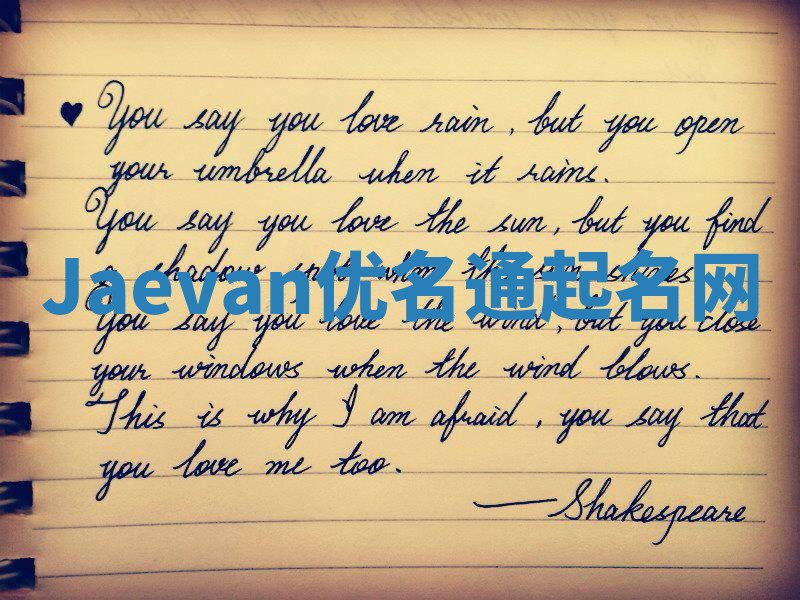 You say you love rain, but you open
your umbrella when it rains.
You say you love the sun, but you find
a shadow spot when the sun shines.
Jaevan优名通起名网
You say you love the wind, but you close
your windows when the wind blows.
This is why I am afraid, you say that
you love me too.
—Shakespeare